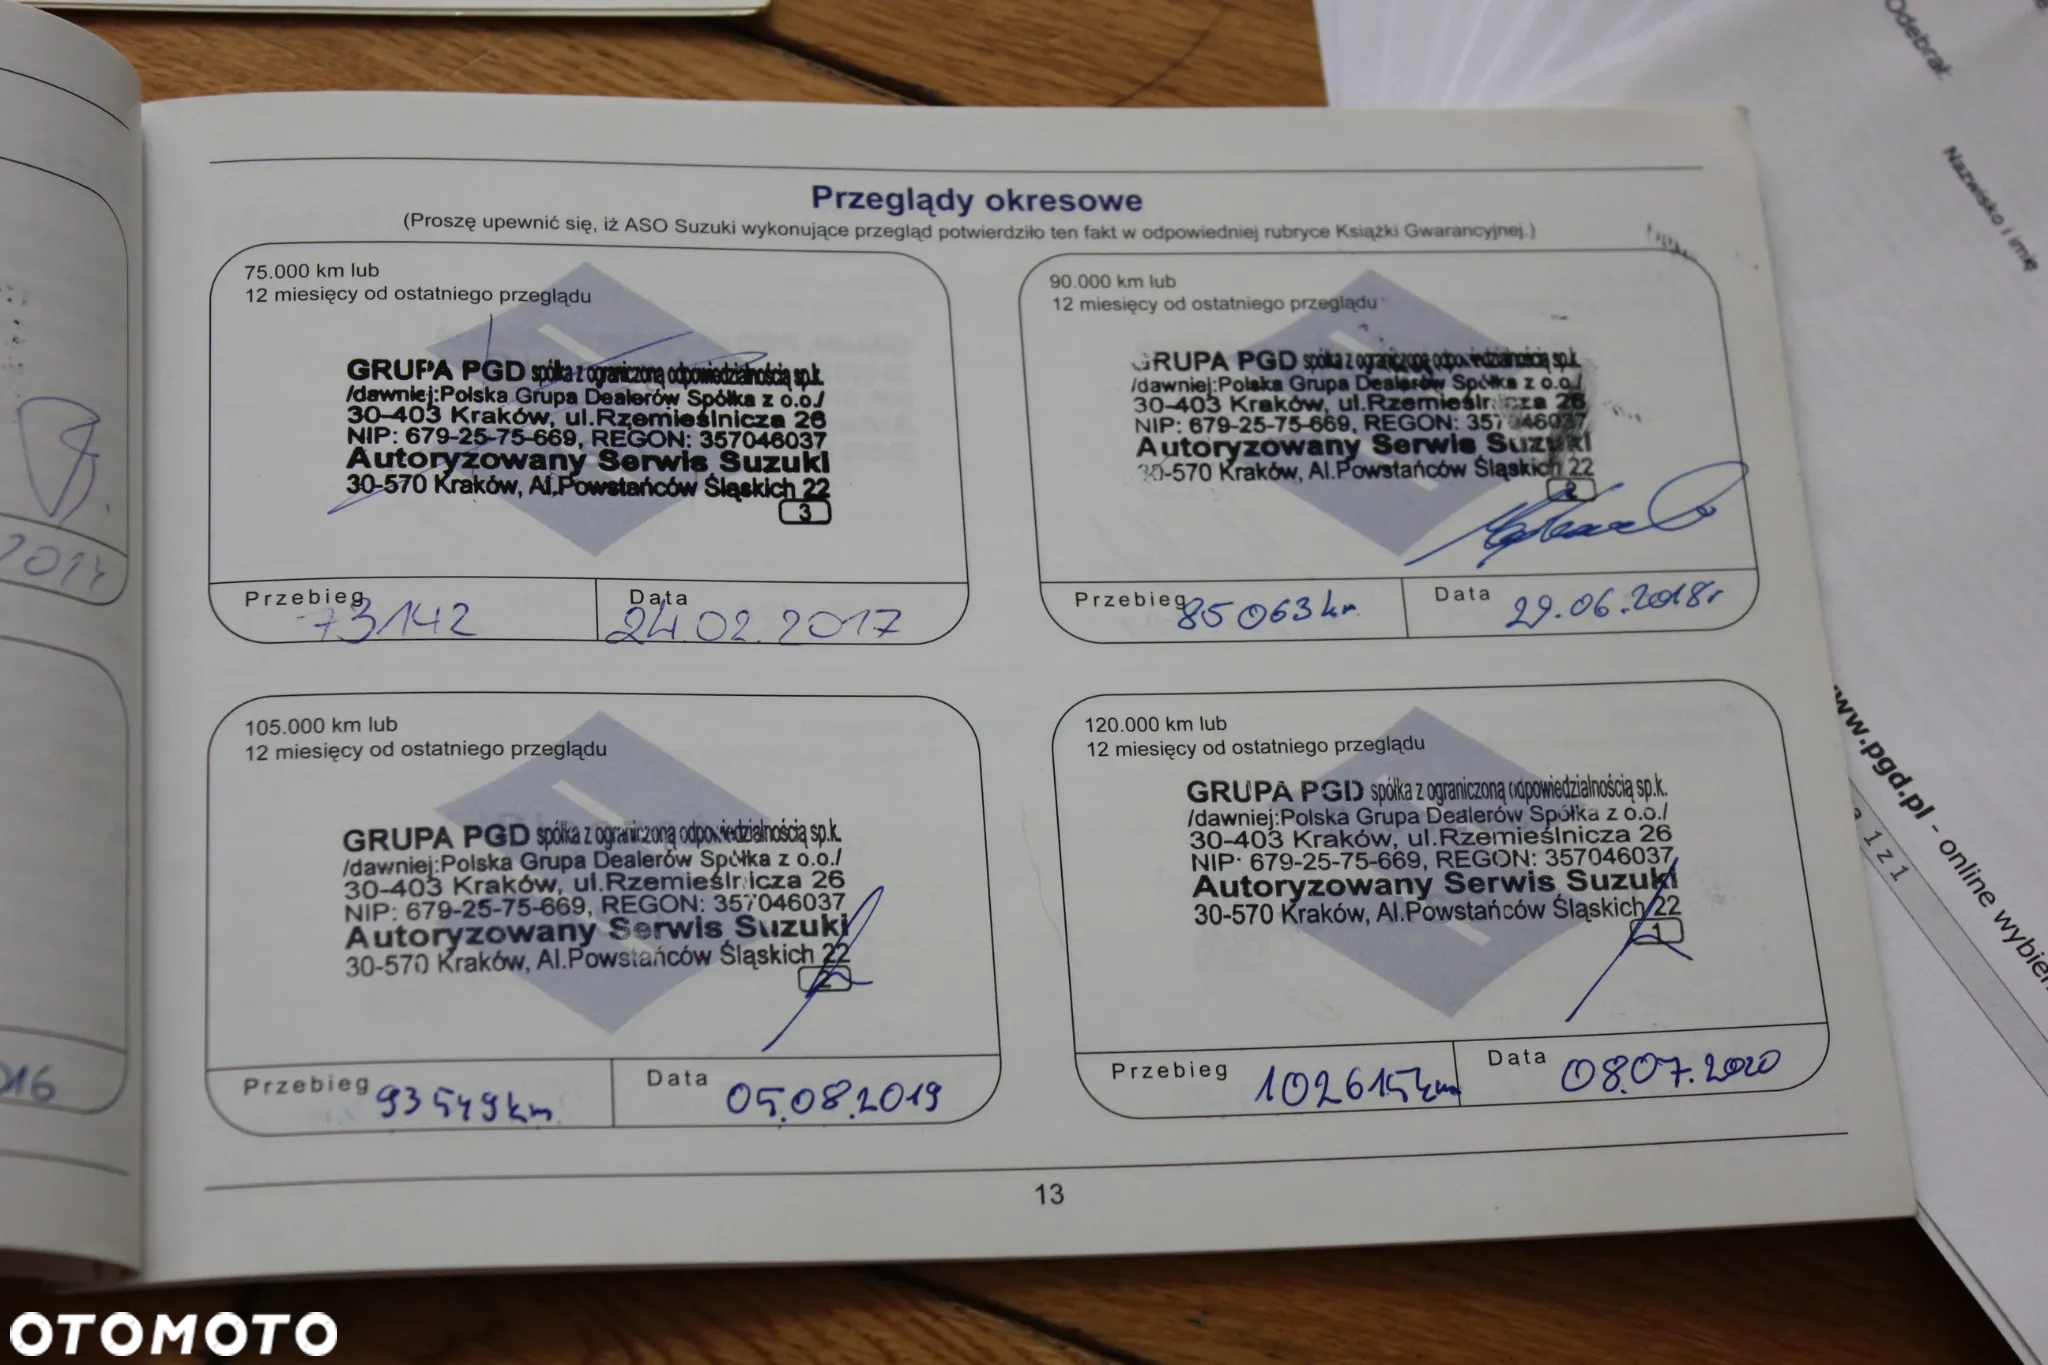 Przeglądy okresowe
(Proszę upewnić się, iż ASO Suzuki wykonujące przegląd potwierdziło ten fakt w odpowiedniej rubryce Książki Gwarancyjnej.)
75.000 km lub
12 miesięcy od ostatniego przeglądu
GRUPA PGD spółka z ograniczoną odpowiedzialnością sp.k.
/dawniej:Polska Grupa Dealerów Spółka z o.o./
30-403 Kraków, ul.Rzemieślnicza 26
NIP: 679-25-75-669, REGON: 357046037
Autoryzowany Serwis Suzuki
30-570 Kraków, Al.Powstańców Śląskich 22
3
Przebieg 73142
Data 24.02.2017
90.000 km lub
12 miesięcy od ostatniego przeglądu
GRUPA PGD spółka z ograniczoną odpowiedzialnością sp.k.
/dawniej:Polska Grupa Dealerów Spółka z o.o./
30-403 Kraków, ul.Rzemieślnicza 26
NIP: 679-25-75-669, REGON: 357046037
Autoryzowany Serwis Suzuki
30-570 Kraków, Al.Powstańców Śląskich 22
2
Przebieg 85063 km
Data 29.06.2018r
105.000 km lub
12 miesięcy od ostatniego przeglądu
GRUPA PGD spółka z ograniczoną odpowiedzialnością sp.k.
/dawniej:Polska Grupa Dealerów Spółka z o.o./
30-403 Kraków, ul.Rzemieślnicza 26
NIP: 679-25-75-669, REGON: 357046037
Autoryzowany Serwis Suzuki
30-570 Kraków, Al.Powstańców Śląskich 22
2
Przebieg 93549 km
Data 05.08.2019
120.000 km lub
12 miesięcy od ostatniego przeglądu
GRUPA PGD spółka z ograniczoną odpowiedzialnością sp.k.
/dawniej:Polska Grupa Dealerów Spółka z o.o./
30-403 Kraków, ul.Rzemieślnicza 26
NIP: 679-25-75-669, REGON: 357046037
Autoryzowany Serwis Suzuki
30-570 Kraków, Al.Powstańców Śląskich 22
1
Przebieg 102615 km
Data 08.07.2020
13
Odebrał:
Nazwisko i imię
www.pgd.pl - online
1 z 1
OTOMOTO